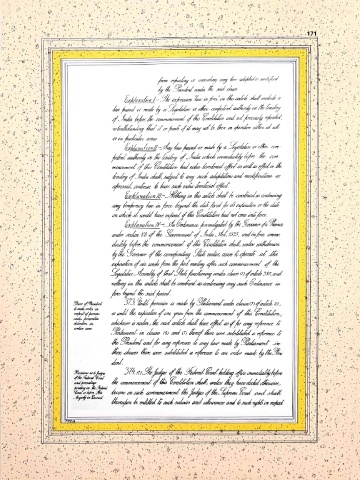 171
from repealing or amending any law adapted or modified
by the President under the said clause.
Explanation I.— The expression "law in force" in this article shall include a
law passed or made by a Legislature or other competent authority in the territory
of India before the commencement of this Constitution and not previously repealed,
notwithstanding that it or parts of it may not be then in operation either at all
or in particular areas.
Explanation II.— Any law passed or made by a Legislature or other com-
petent authority in the territory of India which immediately before the com-
mencement of this Constitution had extra-territorial effect as well as effect in the
territory of India shall, subject to any such adaptations and modifications as
aforesaid, continue to have such extra-territorial effect.
Explanation III.— Nothing in this article shall be construed as continuing
any temporary law in force beyond the date fixed for its expiration or the date
on which it would have expired if this Constitution had not come into force.
Explanation IV.— An Ordinance promulgated by the Governor of a Province
under section 88 of the Government of India Act, 1935, and in force imme-
diately before the commencement of this Constitution shall, unless withdrawn
by the Governor of the corresponding State earlier, cease to operate at the
expiration of six weeks from the first meeting after such commencement of the
Legislative Assembly of that State functioning under clause (1) of article 382, and
nothing in this article shall be construed as continuing any such Ordinance in
force beyond the said period.
Power of President
to make order in
respect of persons
under preventive
detention in
certain cases.
373. Until provision is made by Parliament under clause (7) of article 22,
or until the expiration of one year from the commencement of this Constitution,
whichever is earlier, the said article shall have effect as if for any reference to
Parliament in clauses (4) and (7) thereof there were substituted a reference to
the President and for any reference to any law made by Parliament in
those clauses there were substituted a reference to an order made by the Presi
dent.
Provisions as to Judges
of the Federal Court
and proceedings
pending in the Federal
Court or before His
Majesty in Council.
374. (1) The Judges of the Federal Court holding office immediately before
the commencement of this Constitution shall, unless they have elected otherwise,
become on such commencement the Judges of the Supreme Court and shall
thereupon be entitled to such salaries and allowances and to such rights in respect